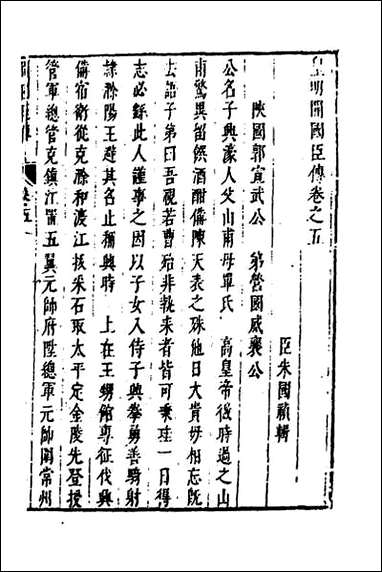 皇明開國臣傳卷之五
臣朱國禎輯
陝國郭宣武公 弟營國威襄公
公名子興濠人父山甫母單氏 高皇帝微時過之山
甫驚異留飲酒酣備陳天表之殊他日大貴毋相忘旣
去語子弟曰吾視若曹殆非執耒者皆可乘堅一日得
志必繇此人謹事之因以子女入侍子興拳勇善騎射
隸滁陽王避其名止稱興時 上在王甥館專征伐興
備宿衛從克滁和渡江拔采石取太平定金陵先登授
管軍總管克鎮江置五翼元帥府陞總軍元帥圍常州